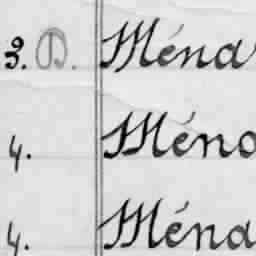 3. D. Ména
4. Méno
4. Ména